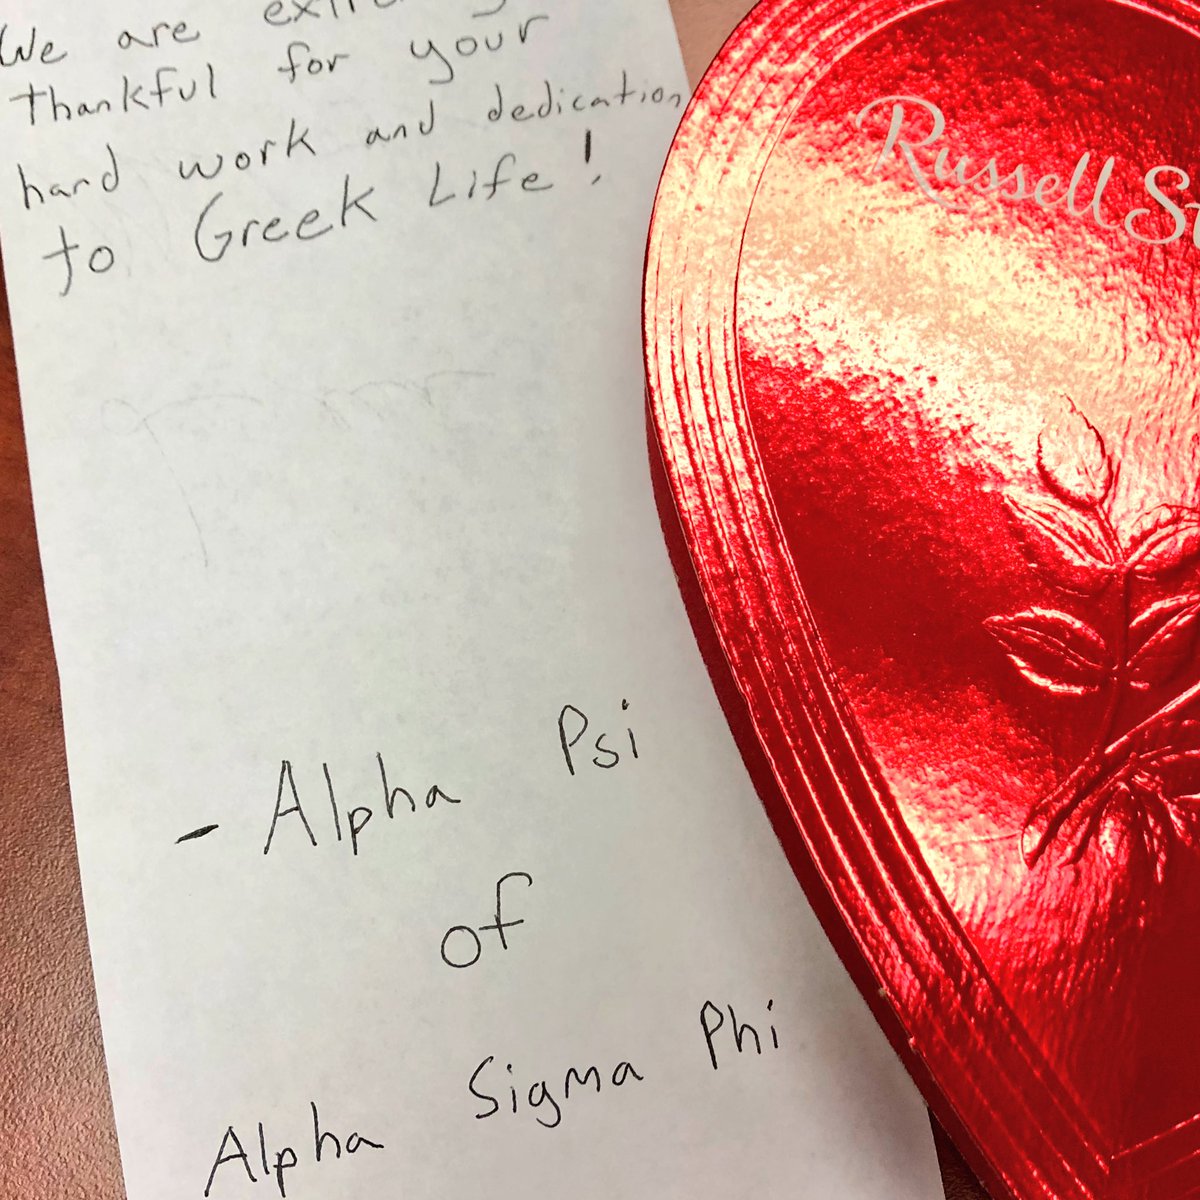 We are
thankful for your
hard work and dedication
to Greek Life!
- Alpha Psi
of
Alpha Sigma Phi
Russell